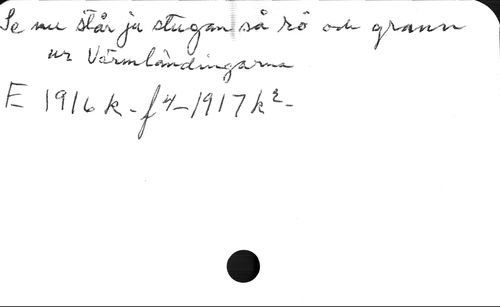 Se nu står ju stugan så rö och grann
ur Värmländingarna
E 1916 k - f 4 - 1917 k 2 -